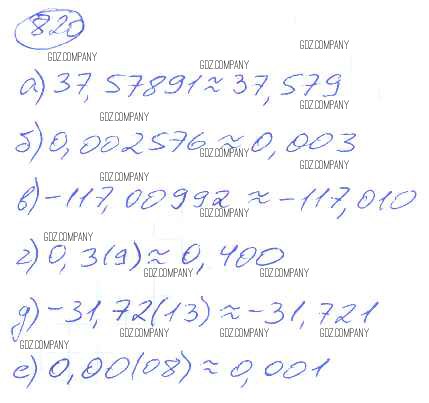 820
GDZ.COMPANY
GDZ.COMPANY GDZ.COMPANY
а) 37,57891 ≈ 37,579
GDZ.COMPANY
GDZ.COMPANY
б) 0,002576 ≈ 0,003
GDZ.COMPANY
GDZ.COMPANY
GDZ.COMPANY
в) -117,00992 ≈ -117,010
GDZ.COMPANY
GDZ.COMPANY
г) 0,3(9) ≈ 0,400
GDZ.COMPANY GDZ.COMPANY
д) -31,72(13) ≈ -31,721
GDZ.COMPANY GDZ.COMPANY GDZ.COMPANY
GDZ.COMPANY
е) 0,00(08) ≈ 0,001
GDZ.COMPANY